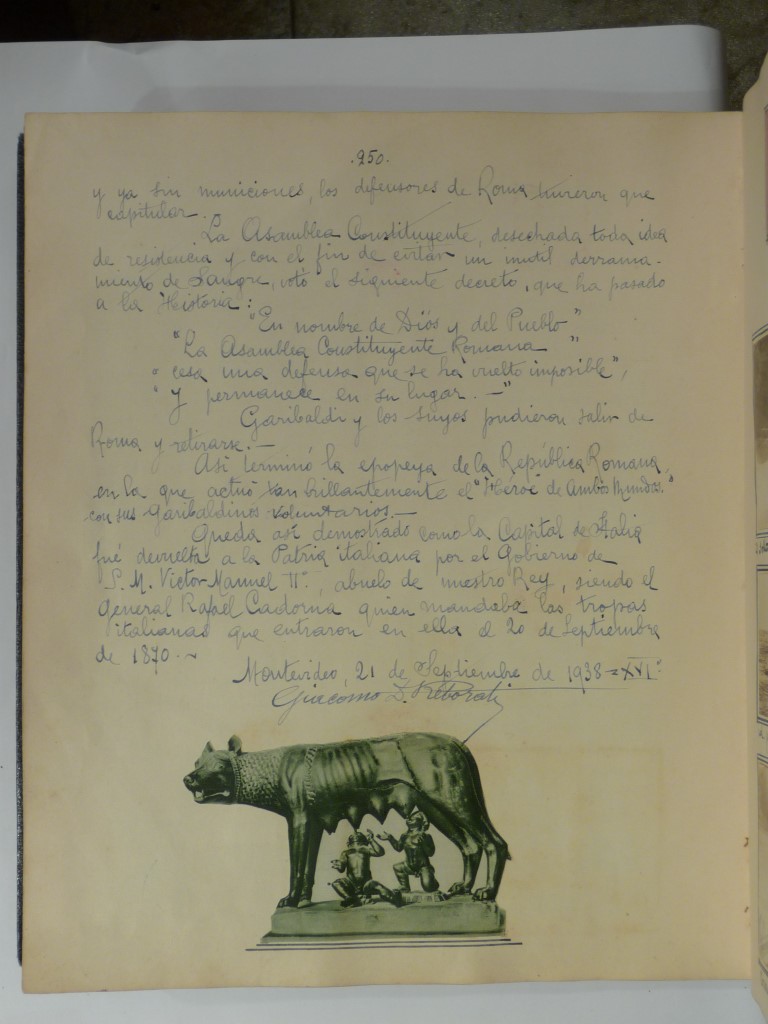 .250.
y ya sin municiones, los defensores de Roma tuvieron que
capitular.—
La Asamblea Constituyente, desechada toda idea
de residencia y con el fin de evitar un inutil derrama-
miento de sangre, votó el siguiente decreto, que ha pasado
a la Historia:
"En nombre de Diós y del Pueblo"
"La Asamblea Constituyente Romana "
" cesa una defensa que se ha vuelto imposible",
" y permanece en su lugar.—"
Garibaldi y los suyos pudieron salir de
Roma y retirarse.—
Así terminó la epopeya de la República Romana,
en la que actuó tan brillantemente el "Héroe de Ambos Mundos."
con sus Garibaldinos voluntarios.—
Queda así demostrado como la Capital de Italia
fué devuelta a la Patria italiana por el Gobierno de
S. M. Victor Manuel IIº, abuelo de nuestro Rey, siendo el
General Rafael Cadorna quien mandaba las tropas
italianas que entraron en ella el 20 de Septiembre
de 1870.~
Montevideo, 21 de Septiembre de 1938=XVIº
Giacomo Z. Reborati